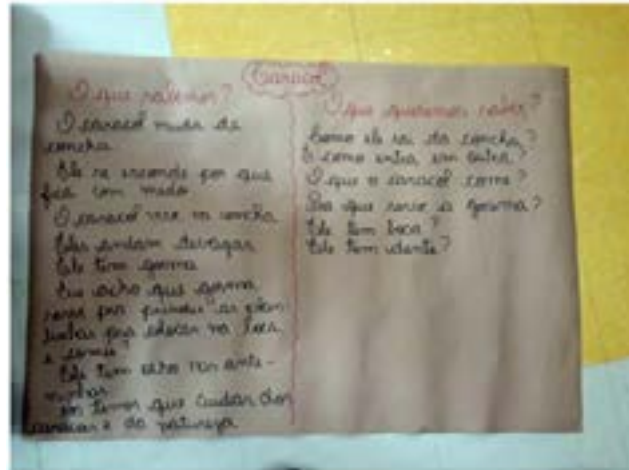 Caracol
O que sabemos?
O caracol muda de
concha
Ele se esconde por que
fica com medo
O caracol vive na concha
Eles andam devagar
Ele tem gosma
Eu acho que gosma
serve pra prender as plan
tinhas pra colocar na boca
e comer
Ele tem olho nas ante-
ninhas
temos que cuidar dos
caracois e da natureza
O que queremos saber?
Como ele sai da concha?
E como entra em outra?
O que o caracol come?
Pra que serve a gosma?
Ele tem boca?
Ele tem dente?